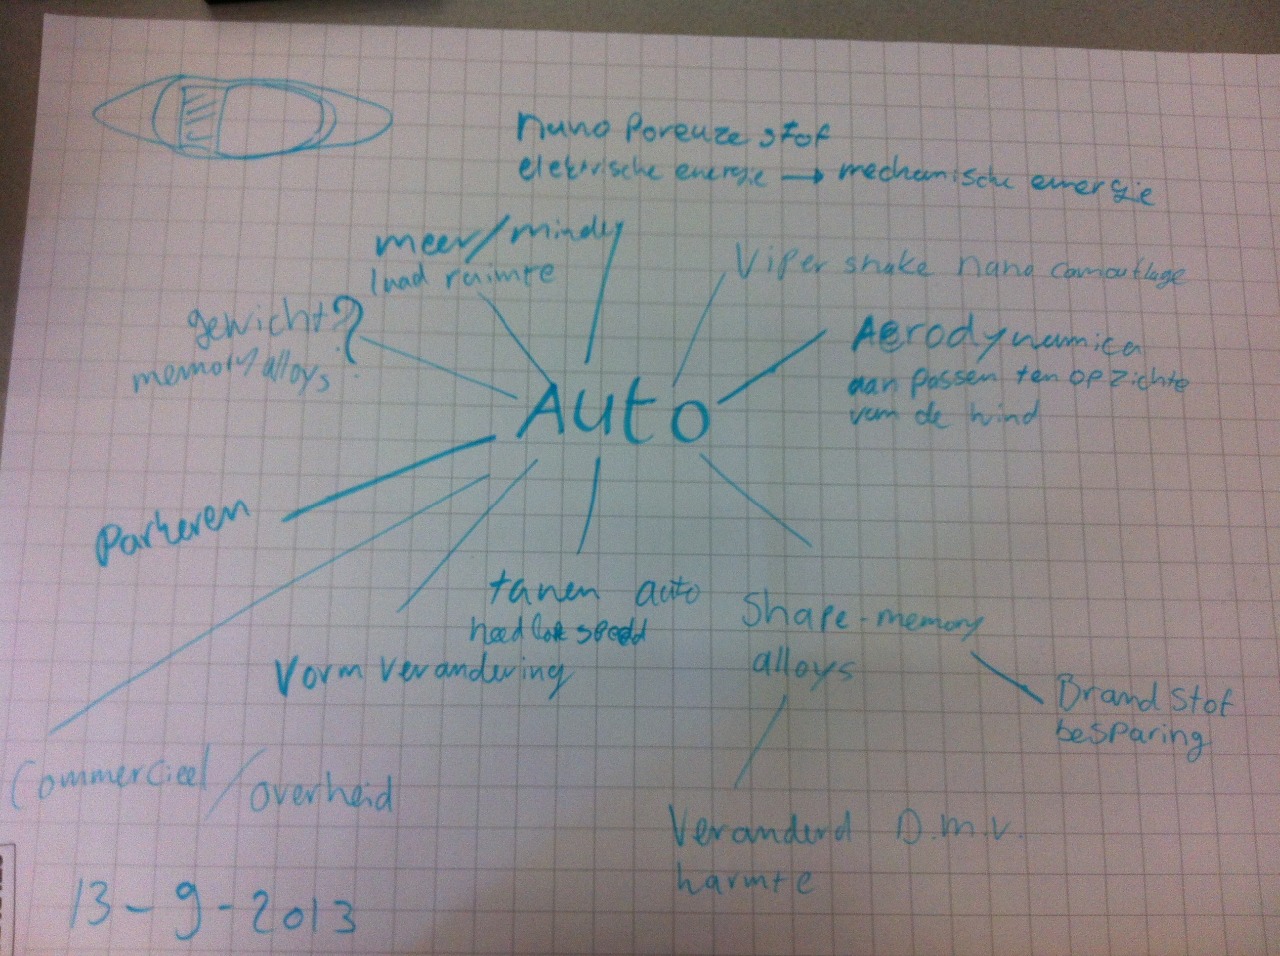 nano Poreuze stof
elektrische energie → mechanische energie
meer/minder
laad ruimte
Viper snake nano camouflage
gewicht?
memory alloys
Aerodynamica
aan passen ten opzichte
van de wind
Auto
Parkeren
tanen auto
Shape-memory
alloys
Vorm verandering
Brand stof
besparing
Commercieel / overheid
Veranderd D.m.v.
warmte
13-9-2013